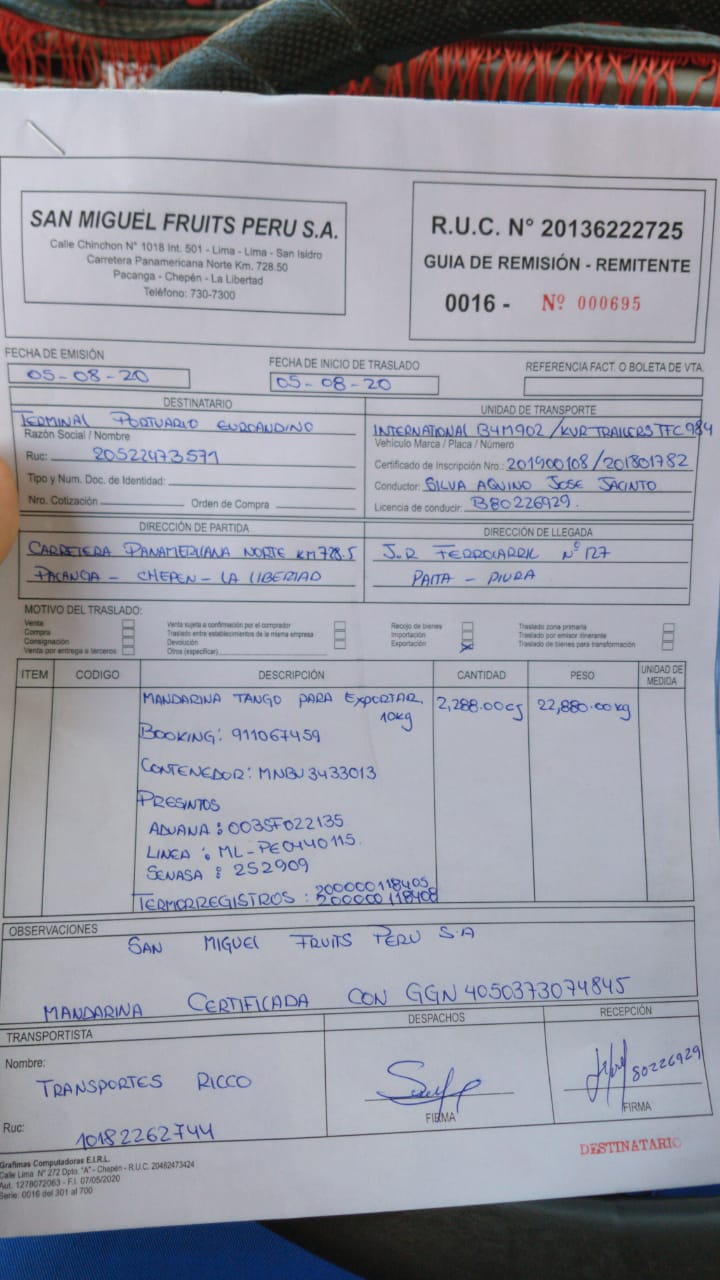 SAN MIGUEL FRUITS PERU S.A.
Calle Chinchon N° 1018 Int. 501 - Lima - Lima - San Isidro
Carretera Panamericana Norte Km. 728.50
Pacanga - Chepén - La Libertad
Teléfono: 730-7300
R.U.C. N° 20136222725
GUIA DE REMISIÓN - REMITENTE
0016 - Nº 000695
FECHA DE EMISIÓN
05-08-20
FECHA DE INICIO DE TRASLADO
05-08-20
REFERENCIA FACT. O BOLETA DE VTA.
DESTINATARIO
TERMINAL PORTUARIO EUROANDINO
Razón Social / Nombre
Ruc: 20522473571
Tipo y Num. Doc. de Identidad:
Nro. Cotización Orden de Compra
UNIDAD DE TRANSPORTE
INTERNATIONAL B4M902 / KUR TRAILERS TFC 984
Vehículo Marca / Placa / Número
Certificado de Inscripción Nro.: 201900108 / 201801782
Conductor: SILVA AQUINO JOSE JACINTO
Licencia de conducir: B80226929
DIRECCIÓN DE PARTIDA
CARRETERA PANAMERICANA NORTE KM 728.5
PACANGA - CHEPEN - LA LIBERTAD
DIRECCIÓN DE LLEGADA
J.R FERROCARRIL Nº 127
PAITA - PIURA
MOTIVO DEL TRASLADO:
Venta
Compra
Consignación
Venta por entrega a terceros
Venta sujeta a confirmación por el comprador
Traslado entre establecimientos de la misma empresa
Devolución
Otros (especificar)
Recojo de bienes
Importación
Exportación
Traslado zona primaria
Traslado por emisor itinerante
Traslado de bienes para transformación
ITEM CODIGO DESCRIPCIÓN CANTIDAD PESO UNIDAD DE MEDIDA
MANDARINA TANGO PARA EXPORTAR 2,288.00 cj 22,880.00 kg
10kg
BOOKING: 911067459
CONTENEDOR: MNBU3433013
PRESINTOS
ADUANA: 003SF022135
LINEA: ML-PE0440115
SENASA: 252909
TERMORREGISTROS: 200000118405
200000118408
OBSERVACIONES
SAN MIGUEL FRUITS PERU S.A
MANDARINA CERTIFICADA CON GGN 4050373074845
TRANSPORTISTA
Nombre:
TRANSPORTES RICCO
Ruc: 10182262744
DESPACHOS
FIRMA
RECEPCIÓN
80226929
FIRMA
Grafimas Computadoras E.I.R.L.
Calle Lima N° 272 Dpto. "A" - Chepén - R.U.C. 20482473424
Aut. 1278072063 - F.I. 07/05/2020
Serie: 0016 del 301 al 700
DESTINATARIO